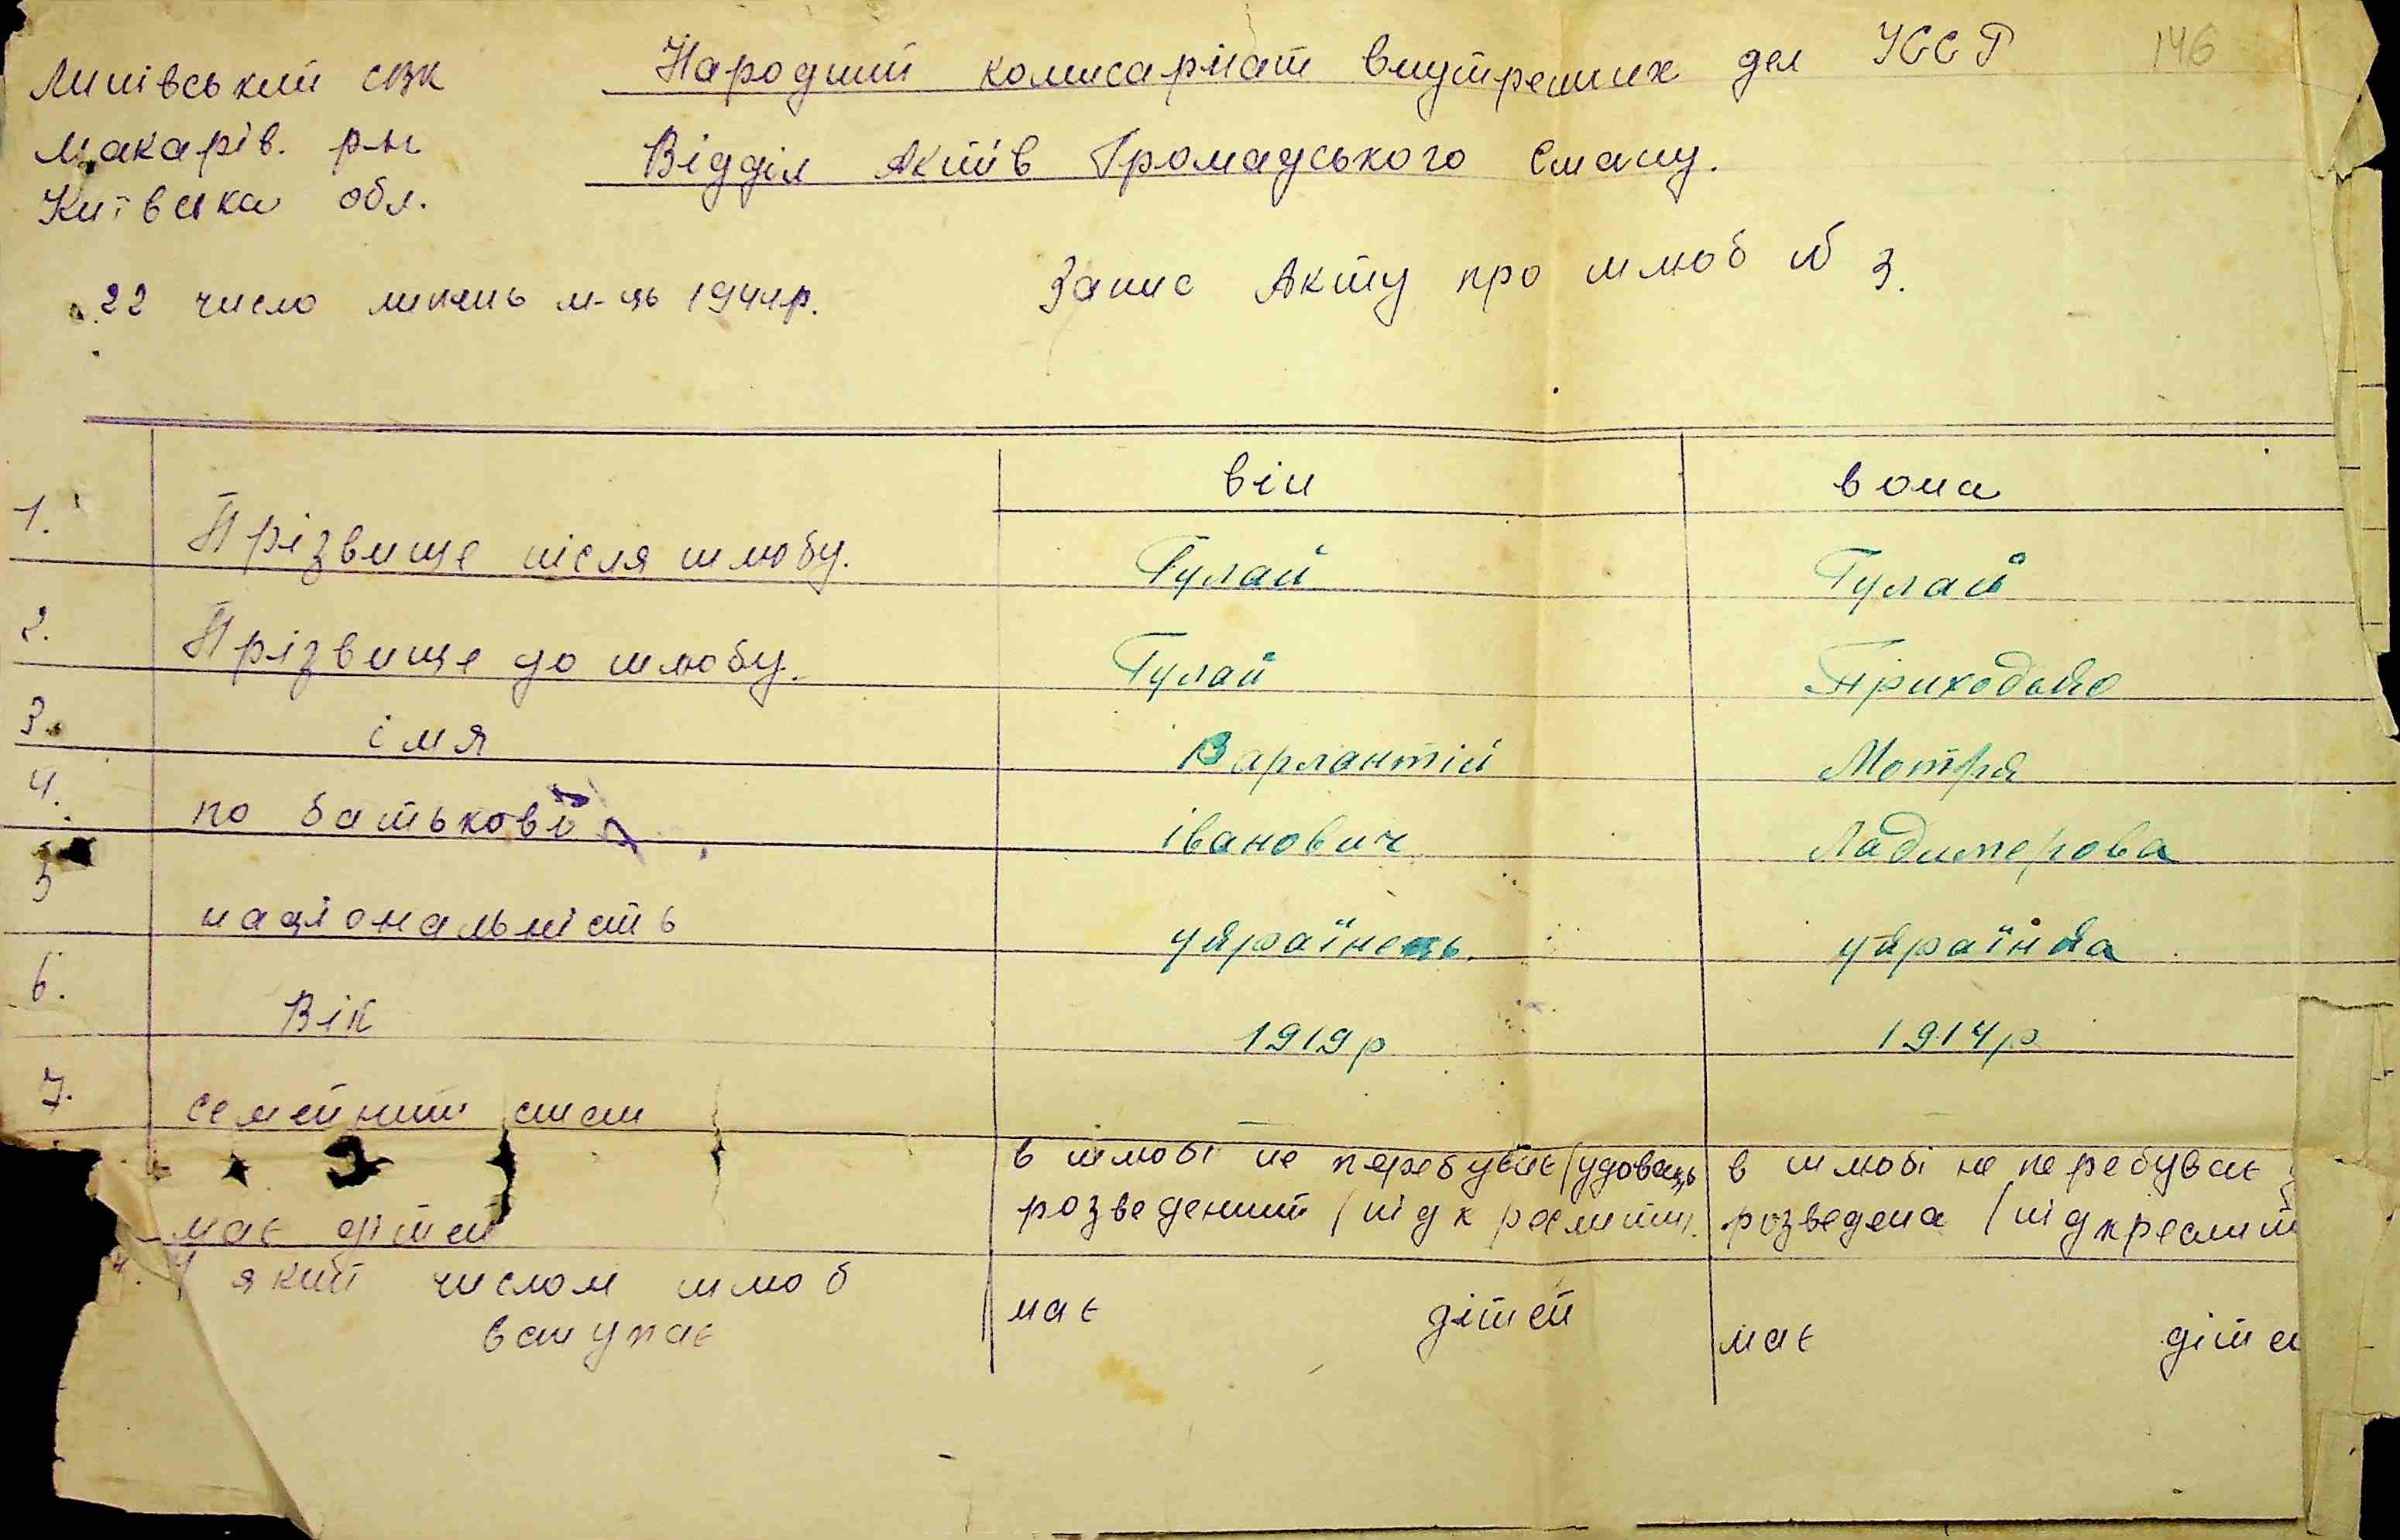 Липівський СВК
Макарів. р-н
Київська обл.
146
Народний комисаріат внутрешних дел УССР
Відділ Актів Громадського Стану.
22 число липень м-ць 1944р.
Запис Акту про шлюб № 3.
він вона
1. Прізвище після шлюбу. Гулай Гулай
2. Прізвище до шлюбу. Гулай Приходько
3. імя Варлантій Мотря
4. по батькові іванович Ладимерова
5 національність українець. українка
6. Вік 1919р 1914р
7. семейний стан
в шлюбі не перебуває/удовець в шлюбі не перебуває
розведений/підкреслити. розведена/підкреслит
має дітей
У який числом шлюб
вступає
має дітей має діте